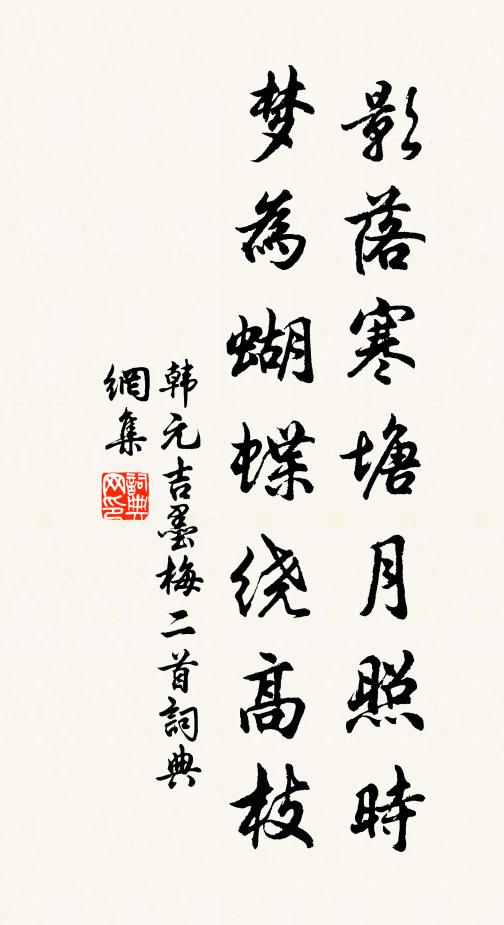 影落寒塘月照時
梦為蝴蝶绕高枝
韩元吉墨梅二首詞典
網集
詞典
网印